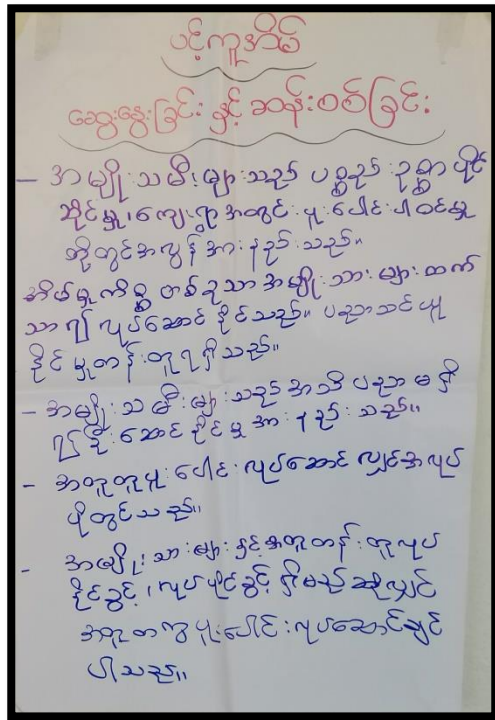 ပင့်ကူအိမ်
ဆွေးနွေးခြင်း နှင့် ဆန်းစစ်ခြင်း
– အမျိုးသမီးများသည် ပစ္စည်းဥစ္စာ ပိုင်
ဆိုင်မှု၊ ကျေးရွာအတွင်း ပူးပေါင်းပါဝင်မှု
တို့တွင် အလွန်အားနည်းသည်။
အိမ်မှုကိစ္စ တစ်ခုသာ အမျိုးသားများထက်
သာ၍ လုပ်ဆောင်နိုင်သည်။ ပညာသင်ယူ
နိုင်မှုတန်းတူရရှိသည်။
– အမျိုးသမီးများသည် အသိပညာမရှိ
၍ ဦးဆောင်နိုင်မှု အားနည်းသည်။
- အတူတူပူးပေါင်းလုပ်ဆောင်လျှင်အလုပ်
ပိုတွင်သည်။
- အမျိုးသားများနှင့်အတူတန်းတူလုပ်
နိုင်ခွင့်၊ လုပ်ပိုင်ခွင့် ရှိမည်ဆိုလျှင်
အတူတကွပူးပေါင်းလုပ်ဆောင်ချင်
ပါသည်။